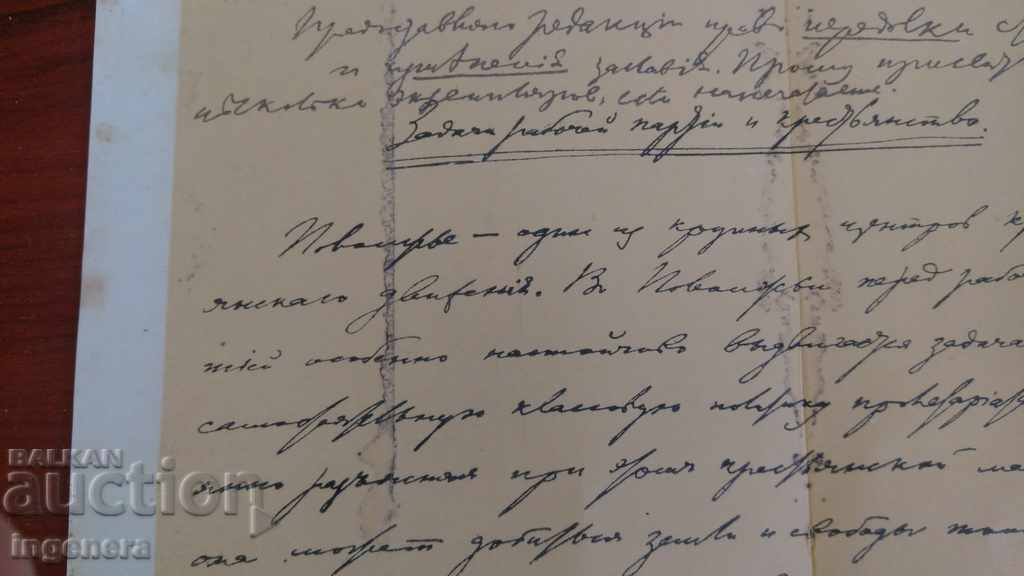 Предоставляю редакции право передовки
и изменений заглавий. Прошу прислать
несколько экземпляров, если напечатаете.
Задачи рабочей партии и крестьянство.
Поволжье — один из крупных центров кр
янскаго движенiй. В Поволжьи перед рабо
тiей особенно настойчиво выдвигается задача
самостоятельную классовую политику пролетариат
ясно разъясняя при этом крестьянской ма
она может добиться земли и свободы
BALKAN
auction
ingenera